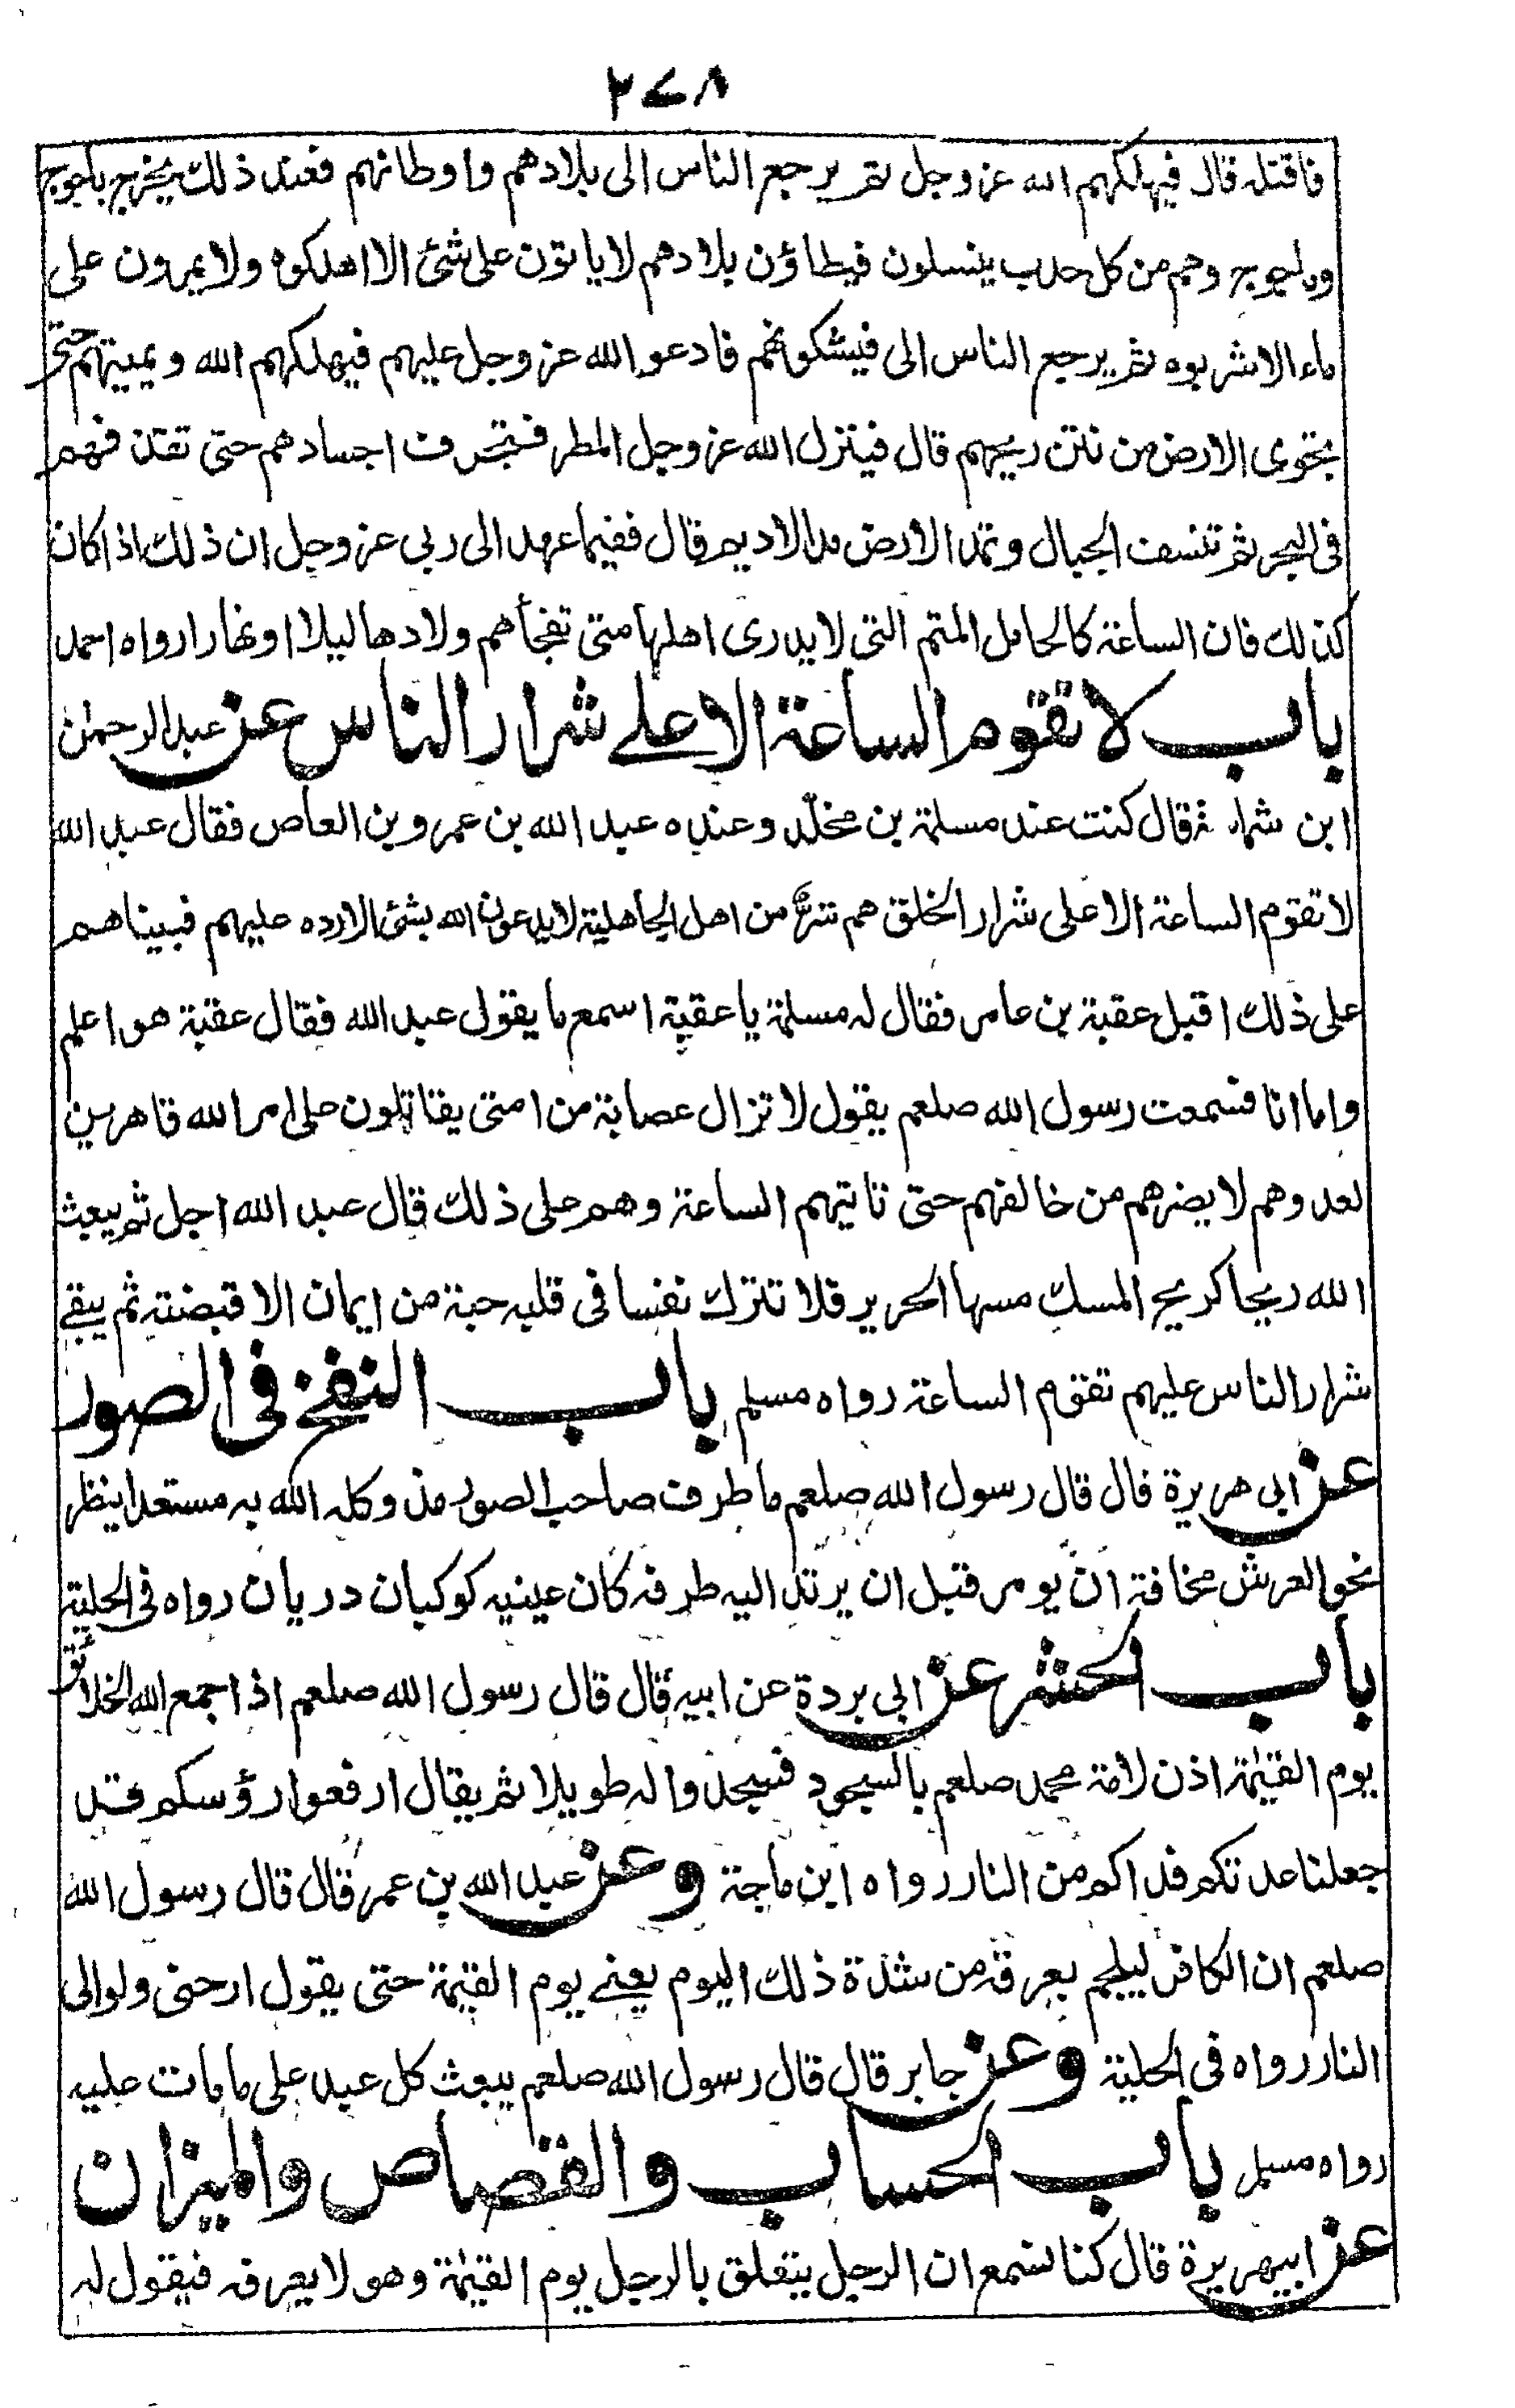 ٢٧٨
فاقتله قال فيهلكهم الله عز وجل ثم يرجع الناس الى بلادهم واوطانهم فعند ذلك يخرج ياجوج
وماجوج وهم من كل حدب ينسلون فيطاؤن بلادهم لاياتون على شئ الا اهلكوه ولا يمرون على
ماء الا شربوه ثم يرجع الناس الى فيشكونهم فادعو الله عز وجل عليهم فيهلكهم الله ويميتهم حتى
تجوى الارض من نتن ريحهم قال فينزل الله عز وجل المطر فتجرف اجسادهم حتى تقذفهم
فى البحر ثم تنسف الجبال وتمد الارض مد الاديم قال ففيما عهد الى ربى عز وجل ان ذلك اذا كان
كذلك فان الساعة كالحامل المتم التى لايدرى اهلها متى تفجأهم ولادها ليلا او نهارا رواه احمد
باب لا تقوم الساعة الا على شرار الناس عن عبد الرحمن
ابن شماسة قال كنت عند مسلمة بن مخلّد وعنده عبد الله بن عمرو بن العاص فقال عبد الله
لا تقوم الساعة الا على شرار الخلق هم شرٌّ من اهل الجاهلية لايدعون الله بشئ الا رده عليهم فبيناهم
على ذلك اقبل عقبة بن عامر فقال له مسلمة يا عقبة اسمع ما يقول عبد الله فقال عقبة هو اعلم
واما انا فسمعت رسول الله صلعم يقول لا تزال عصابة من امتى يقاتلون على امر الله قاهرين
لعدوهم لا يضرهم من خالفهم حتى تاتيهم الساعة وهم على ذلك قال عبد الله اجل ثم يبعث
الله ريحا كريح المسك مسها الحرير فلا تترك نفسا فى قلبه حبة من ايمان الا قبضته ثم يبقى
شرار الناس عليهم تقوم الساعة رواه مسلم باب النفخ فى الصور
عن ابى هريرة قال قال رسول الله صلعم ما طرف صاحب الصور مذ وكله الله به مستعدا ينظر
نحو العرش مخافة ان يومر قبل ان يرتد اليه طرفه كان عينيه كوكبان دريان رواه فى الحلية
باب الحشر عن ابى بردة عن ابيه قال قال رسول الله صلعم اذا جمع الله الخلائق
يوم القيٰمة اذن لامة محمد صلعم بالسجود فسجدوا له طويلا ثم يقال ارفعوا رؤسكم قد
جعلنا عدتكم فداكم من النار رواه ابن ماجة وعن عبد الله بن عمر قال قال رسول الله
صلعم ان الكافر ليلجم بعرقه من شدة ذلك اليوم يعنى يوم القيٰمة حتى يقول ارحنى ولو الى
النار رواه فى الحلية وعن جابر قال قال رسول الله صلعم يبعث كل عبد على ما مات عليه
رواه مسلم باب الحساب والقصاص والميزان
عن ابيهريرة قال كنا نسمع ان الرجل يتعلق بالرجل يوم القيٰمة وهو لا يعرفه فيقول له